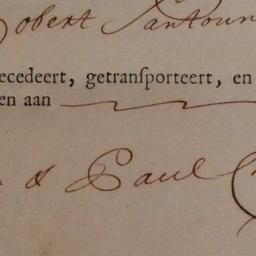 Robert Santoun
ecedeert, getransporteert, en
en aan
& Paul